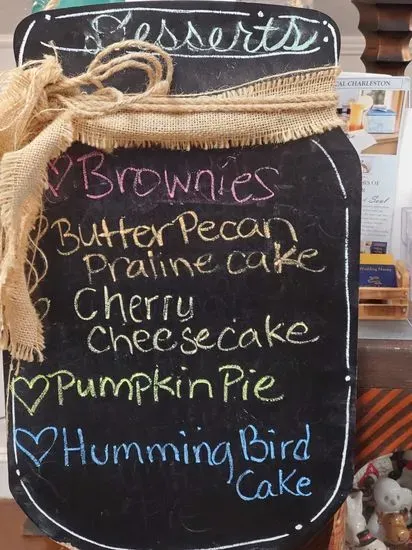 Desserts
Brownies
Butter Pecan
Praline cake
Cherry
cheesecake
Pumpkin Pie
Humming Bird
Cake
CAL CHARLESTON